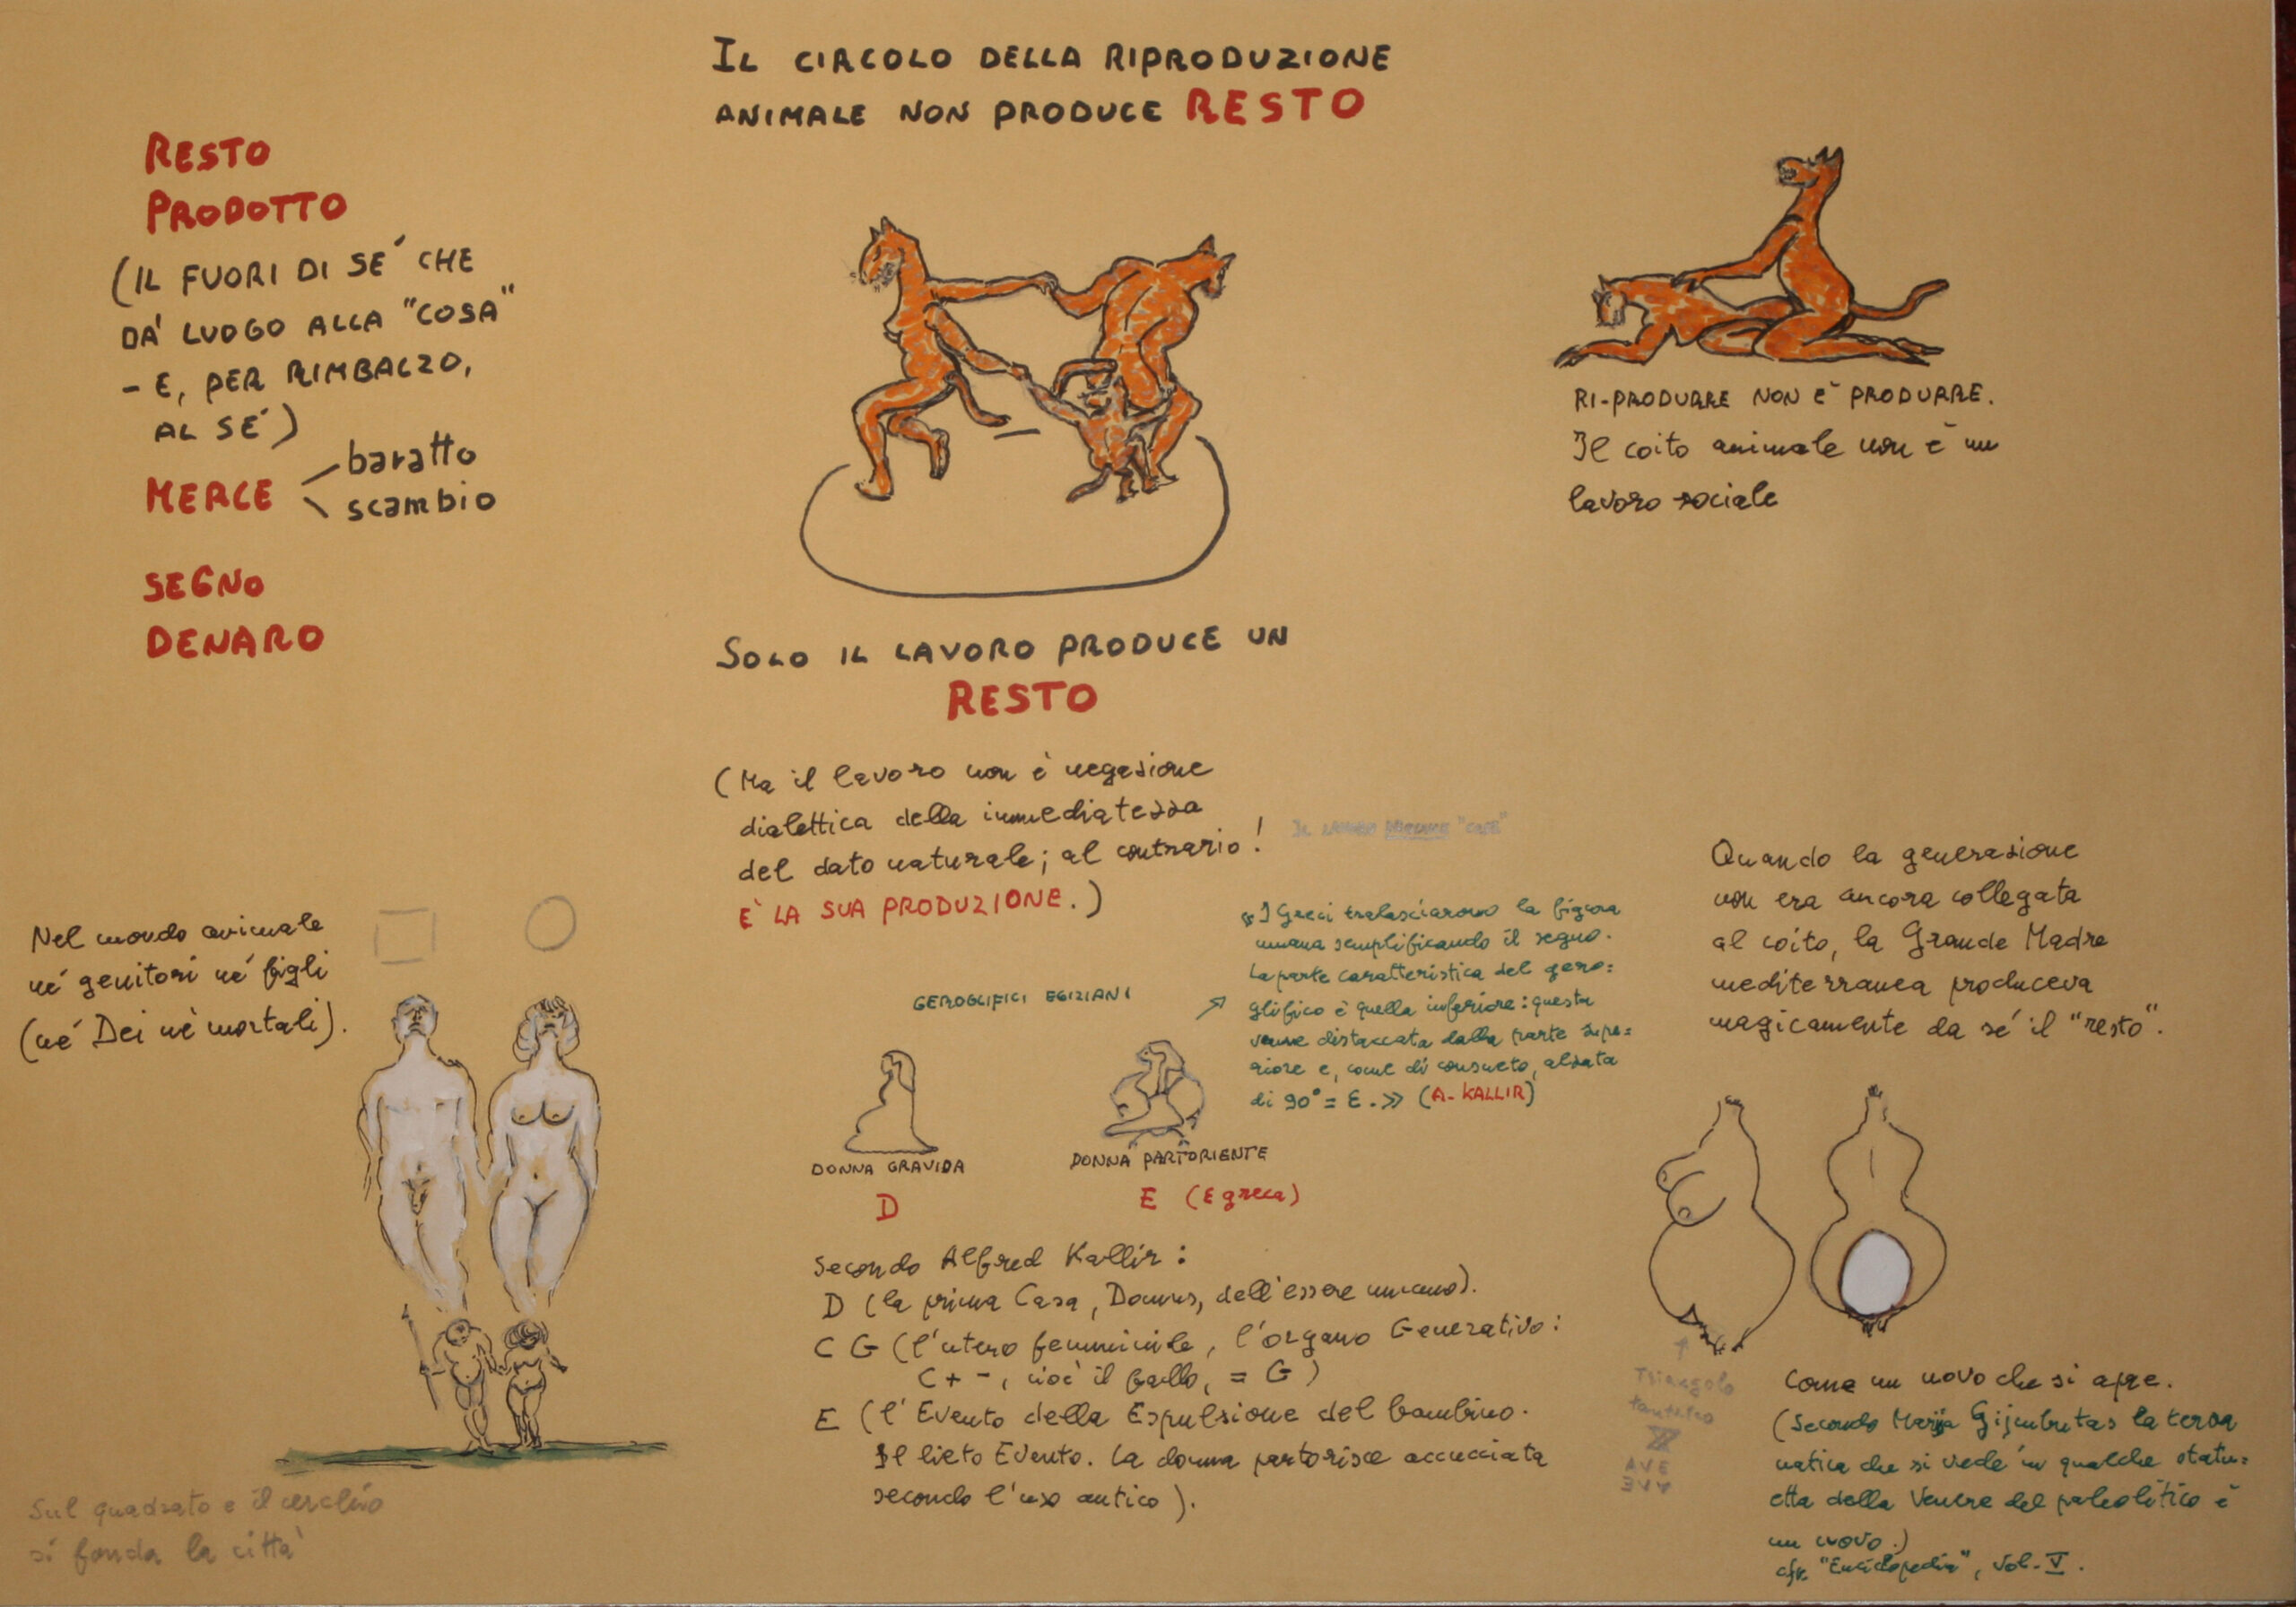 IL CIRCOLO DELLA RIPRODUZIONE
ANIMALE NON PRODUCE RESTO
RESTO
PRODOTTO
(IL FUORI DI SE' CHE
DA' LUOGO ALLA "COSA"
- E, PER RIMBALZO,
AL SE')
MERCE
baratto
scambio
SEGNO
DENARO
RI-PRODURRE NON E' PRODURRE.
Il coito animale non è un
lavoro sociale
SOLO IL LAVORO PRODUCE UN
RESTO
(Ma il lavoro non è negazione
dialettica della immediatezza
del dato naturale; al contrario!
E' LA SUA PRODUZIONE.)
IL LAVORO PRODUCE "COSE"
Nel mondo animale
né genitori né figli
(né Dei né mortali).
Sul quadrato e il cerchio
si fonda la città
GEROGLIFICI EGIZIANI
DONNA GRAVIDA
D
DONNA PARTORIENTE
E (E greca)
« I Greci tralasciarono la figura
umana semplificando il segno.
La parte caratteristica del gero=
glifico è quella inferiore: questa
venne distaccata dalla parte supe=
riore e, come di consueto, alzata
di 90° = E. » (A. KALLIR)
Secondo Alfred Kallir:
D (la prima Casa, Domus, dell'essere umano).
C G (l'utero femminile, l'organo Generativo:
C + -, cioè il fallo, = G)
E (l'Evento della Espulsione del bambino.
Il lieto Evento. La donna partorisce accucciata
secondo l'uso antico).
Quando la generazione
non era ancora collegata
al coito, la Grande Madre
mediterranea produceva
magicamente da sé il "resto".
Triangolo
tantrico
AVE
Come un uovo che si apre.
(Secondo Marija Gijmbutas la terza
natica che si vede in qualche statu=
etta della Venere del paleolitico è
un uovo.)
cfr. "Enciclopedia", Vol. V.